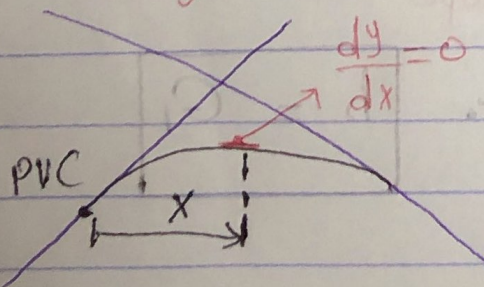 dy/dx = 0
PVC
x